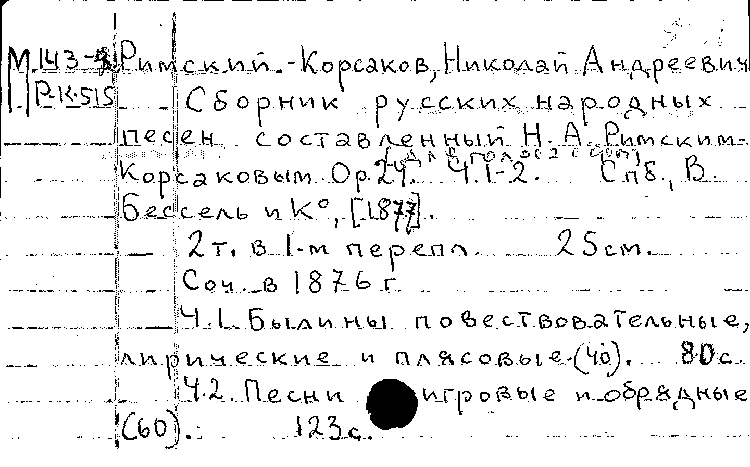 М.143-4 Римский-Корсаков, Николай Андреевич
Р-К.515 Сборник русских народных
песен составленный Н. А. Римским-
(для голоса с фп)
Корсаковым Op.24. Ч.1-2. Спб., В.
Бессель и К°, [1877].
2 т. в 1-м перепл. 25 см.
Соч. в 1876 г.
Ч.1. Былины повествовательные,
лирические и плясовые (40). 80 с.
Ч.2. Песни игровые и обрядные
(60). 123 с.